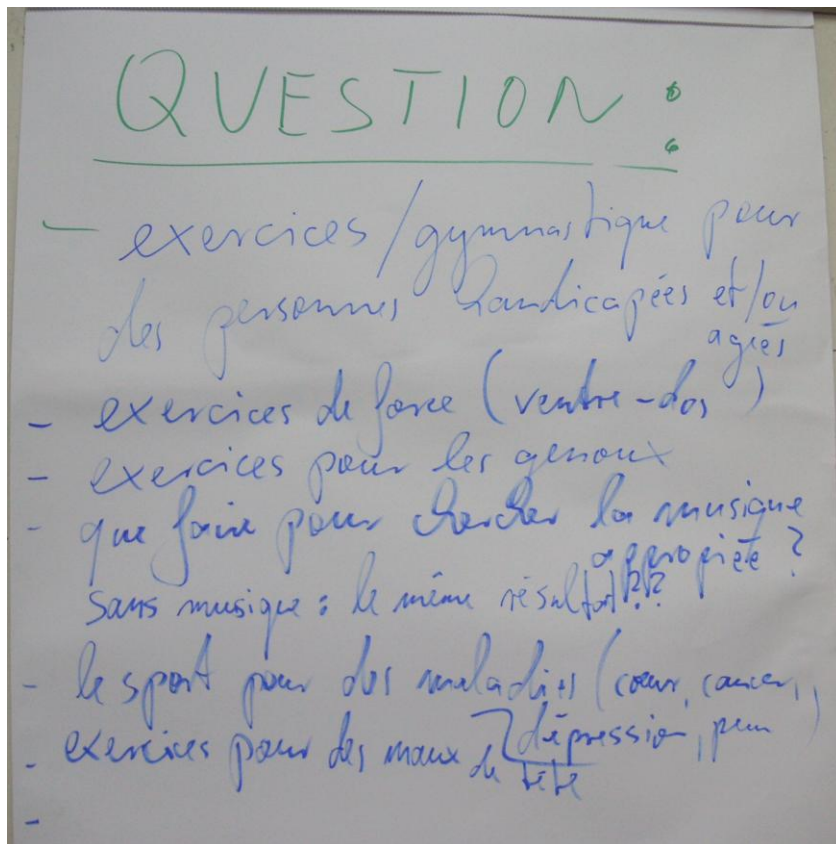 QUESTION :
- exercices/gymnastique pour
des personnes handicapées et/ou
agiés
- exercices de force (ventre-dos)
- exercices pour les genoux
- que faire pour chercher la musique
appropiée ?
sans musique : le même résultat ???
- le sport pour des maladies (cœur, cancer,
dépression, peur)
- exercices pour des maux de tête
-